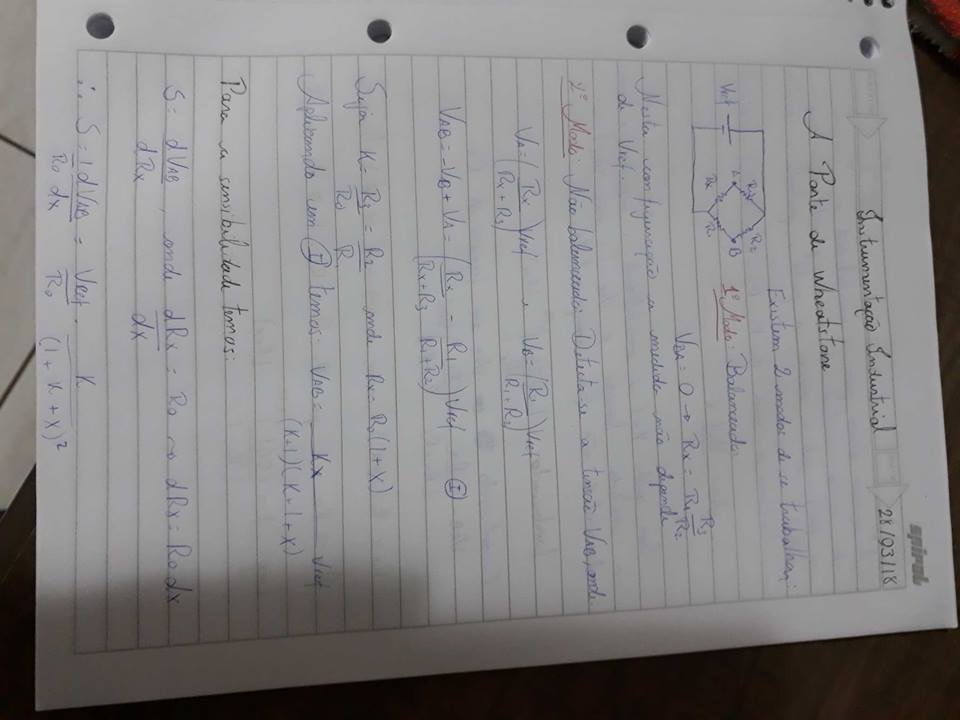 spiral
Instrumentação Industrial 28/03/18
A Ponte de Wheatstone
Existem 2 modos de se trabalhar:
Vref R3 R2 A B Rx R1
1º Modo: Balanceado:
VBA = 0 → Rx = R1 R3/R2
Nesta configuração a medida não depende
de Vref.
2º Modo: Não balanceado: Detecta-se a tensão VAB, onde:
VA = (Rx/(Rx + R3)) Vref , VB = (R1/(R1 + R2)) Vref
VAB = -VB + VA = (Rx/(Rx+R3) - R1/(R1+R2)) Vref (I)
Seja K = R3/R0 = R2/R1 onde Rx = R0(1 + x)
Aplicando em (I) temos: VAB = Kx/((K+1)(K+1+x)) Vref
Para a sensibilidade temos:
S = dVAB/dRx, onde dRx/dx = R0 ~> dRx = R0 dx
∴ S = 1/R0 dVAB/dx = Vref/R0 · K/(1 + K + x)²